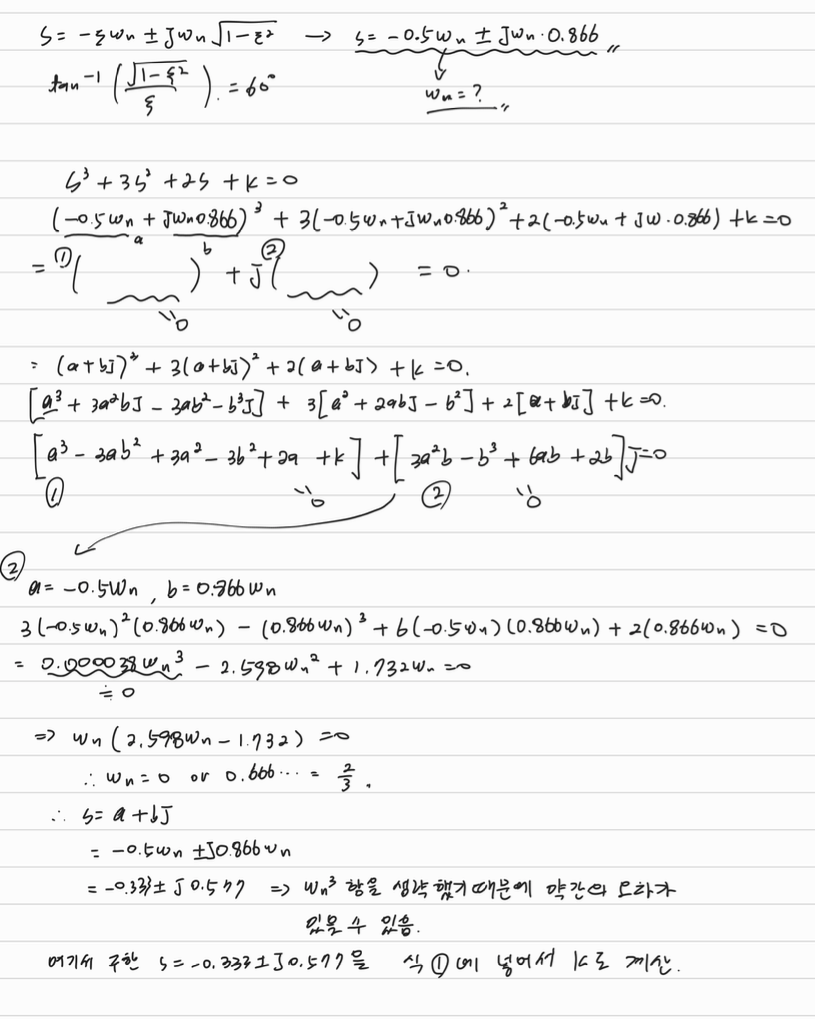 S = -ξωn ± Jωn√(1-ξ²) → S = -0.5ωn ± Jωn·0.866 〃
tan⁻¹(√(1-ξ²)/ξ) = 60° ωn = ? 〃
S³ + 3S² + 2S + K = 0
(-0.5ωn + Jωn0.866)³ + 3(-0.5ωn + Jωn0.866)² + 2(-0.5ωn + Jω·0.866) + K = 0
a b
= ①( ) + J②( ) = 0.
0 0
= (a+bJ)³ + 3(a+bJ)² + 2(a+bJ) + K = 0.
[a³ + 3a²bJ - 3ab² - b³J] + 3[a² + 2abJ - b²] + 2[a + bJ] + K = 0.
[a³ - 3ab² + 3a² - 3b² + 2a + K] + [3a²b - b³ + 6ab + 2b]J = 0
① 0 ② 0
②
a = -0.5ωn , b = 0.866ωn
3(-0.5ωn)²(0.866ωn) - (0.866ωn)³ + 6(-0.5ωn)(0.866ωn) + 2(0.866ωn) = 0
= 0.000038ωn³ - 2.598ωn² + 1.732ωn = 0
≒ 0
⇒ ωn(2.598ωn - 1.732) = 0
∴ ωn = 0 or 0.666··· = 2/3 .
∴ S = a + bJ
= -0.5ωn ± J0.866ωn
= -0.333 ± J 0.577 ⇒ ωn³ 항을 생략 했기 때문에 약간의 오차가
있을 수 있음.
여기서 구한 S = -0.333 ± J0.577을 식 ①에 넣어서 K로 계산.